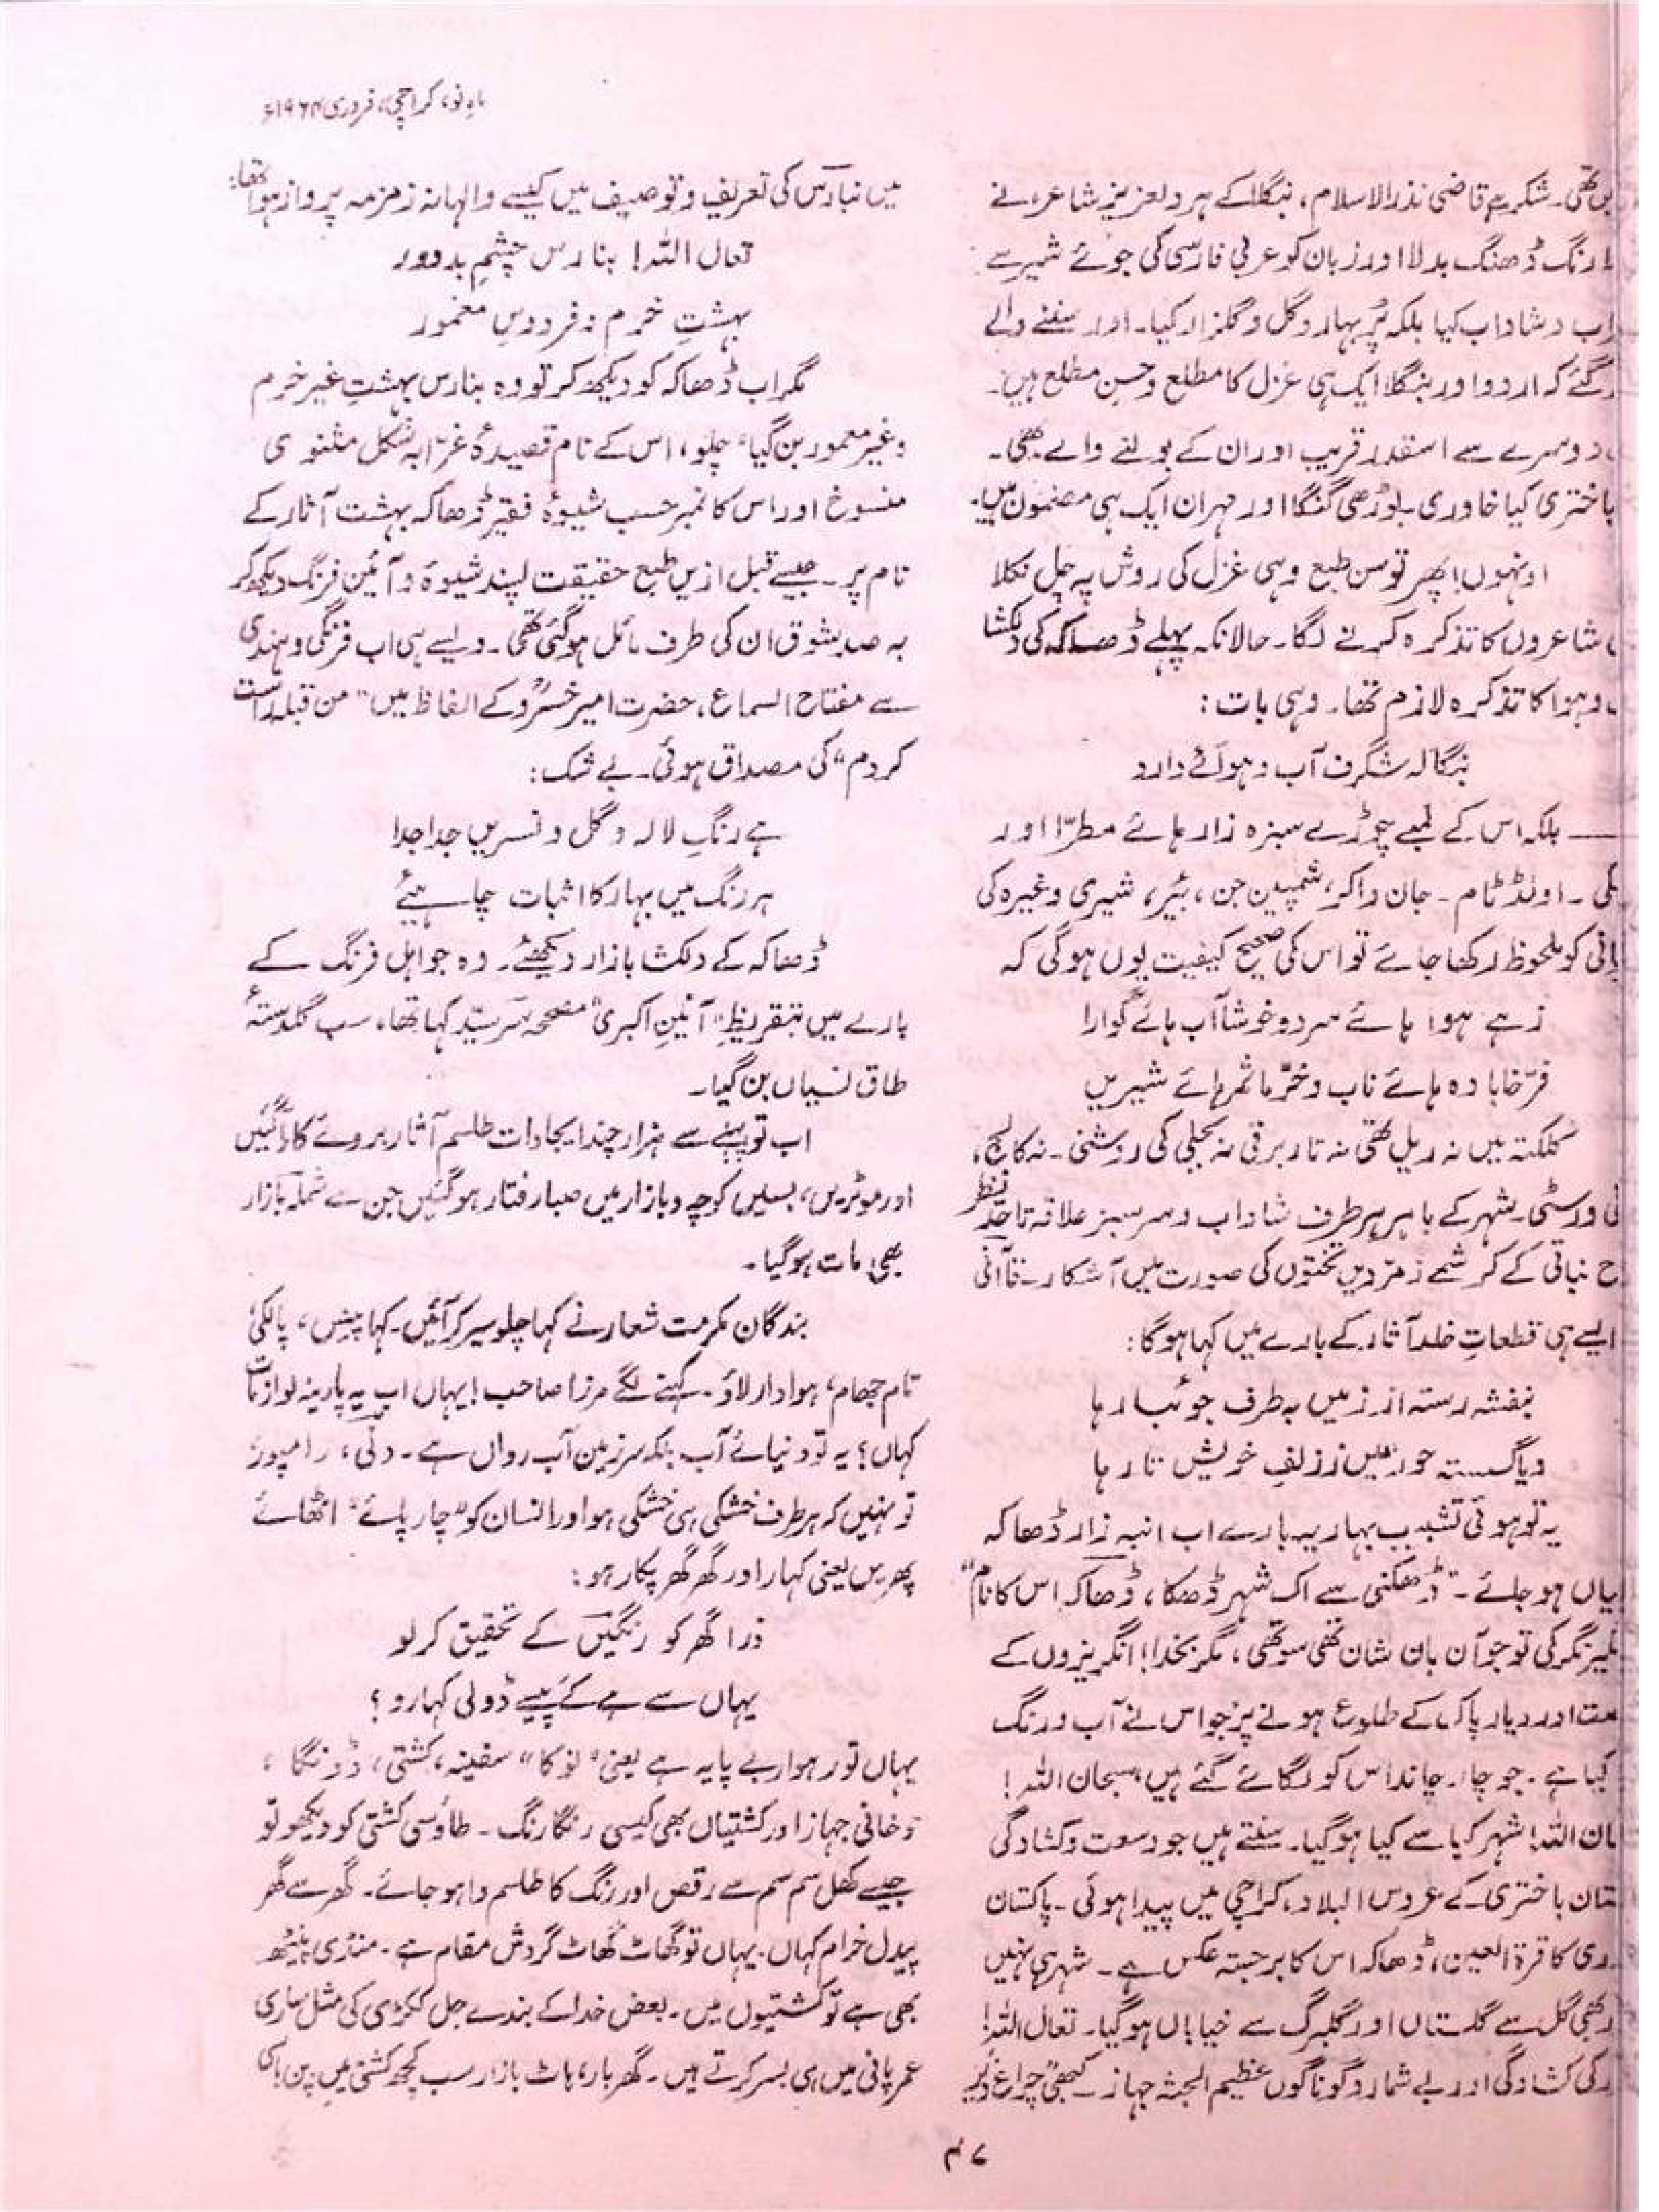 ماہِ نو، کراچی، فروری ۱۹۶۴ء
تھی۔ شکر ہے قاضی نذرالاسلام، بنگلا کے ہر دلعزیز شاعر، نے
رنگ ڈھنگ بدلا اور زبان کو عربی فارسی کی جوئے شیر سے
و شاداب کیا بلکہ پُر بہار و گل و گلزار کیا۔ اور سننے والے
گئے کہ اردو اور بنگلا ایک ہی غزل کا مطلع و حسنِ مطلع ہیں۔
دوسرے سے اسقدر قریب اور ان کے بولنے والے بھی۔
باختری کیا خاوری۔ بوڑھی گنگا اور مہران ایک ہی مضمون ہیں۔
اونہوں! پھر توسنِ طبع وہی غزل کی روش پہ چل نکلا
شاعروں کا تذکرہ کرنے لگا۔ حالانکہ پہلے ڈھاکہ کی دلکشا
و ہوا کا تذکرہ لازم تھا۔ وہی بات:
بنگالہ شگرف آب و ہوائے دارد
— بلکہ اس کے لمبے چوڑے سبزہ زار ہائے مطرّا اور
۔ اولڈ ٹام۔ جان واکر، شمپین جن، بئیر، شیری وغیرہ کی
کو ملحوظ رکھا جائے تو اس کی صحیح کیفیت یوں ہوگی کہ
زہے ہوا ہائے سرد و خوشا آب ہائے گوارا
فرّخا بادہ ہائے ناب و خرّما ثمر ہائے شیریں
کلکتہ میں نہ ریل تھی نہ تار برقی نہ بجلی کی روشنی۔ نہ کالج،
ورسٹی۔ شہر کے باہر ہر طرف شاداب و سرسبز علاقہ تا حدِّ نظر
نباتی کے کرشمے زمردیں تختوں کی صورت میں آشکار۔ قاآنی
ایسے ہی قطعاتِ خلد آثار کے بارے میں کہا ہوگا:
بنفشہ رستہ از زمیں بہ طرفِ جوئبار ہا
ویا گسستہ حورِ عیں ز زلفِ خویش تار ہا
یہ تو ہوئی تشبیب بہاریہ بارے اب انبہ زار ڈھاکہ
ہو جائے۔ "ڈھکنی سے اک شہر ڈھکا، ڈھاکہ اس کا نام"
نگر کی تو جو آن بان شان تھی سو تھی، مگر بخدا! انگریزوں کے
اور دیارِ پاک کے طلوع ہونے پر جو اس نے آب و رنگ
کیا ہے۔ جو چار چاند اس کو لگائے گئے ہیں، سبحان اللہ!
اللہ! شہر کیا سے کیا ہوگیا۔ سنتے ہیں جو وسعت و کشادگی
باختری کے عروس البلاد، کراچی میں پیدا ہوئی۔ پاکستان
کا قرۃ العین، ڈھاکہ اس کا برجستہ عکس ہے۔ شہر ہی نہیں
بھی گل سے گلستاں اور گلبرگ سے خیاباں ہوگیا۔ تعال اللہ!
کی کشادگی اور بے شمار و گوناگوں عظیم الجثہ جہاز۔ کبھی "چراغِ دیر"
میں بنارس کی تعریف و توصیف میں کیسے والہانہ زمزمہ پرواز ہوا تھا:
تعال اللہ! بنارس چشمِ بد دور
بہشتِ خرم و فردوسِ معمور
مگر اب ڈھاکہ کو دیکھ کر تو وہ بنارس بہشتِ غیر خرم
و غیر معمور بن گیا۔ چلو، اس کے نام قصیدۂ غرّا بہ شکل مثنوی
منسوخ اور اس کا نمبر حسبِ شیوۂ فقیر ڈھاکہ بہشت آثار کے
نام پر۔ جیسے قبل ازیں طبع حقیقت پسند شیوہ و آئینِ فرنگ دیکھ کر
بہ صد شوق ان کی طرف مائل ہوگئی تھی۔ ویسے ہی اب فرنگی و ہندی
سے مفتاح السماع، حضرت امیر خسروؒ کے الفاظ میں "من قبلہ راست
کردم" کی مصداق ہوئی۔ بے شک:
ہے رنگِ لالہ و گل و نسریں جدا جدا
ہر رنگ میں بہار کا اثبات چاہیئے
ڈھاکہ کے دلکشا بازار دیکھئے۔ وہ جو اہلِ فرنگ کے
بارے میں بتقریظِ "آئینِ اکبری" مصححہ سرسید کہا تھا، سب گلدستۂ
طاقِ نسیاں بن گیا۔
اب تو پہلے سے ہزار چند ایجادات طلسم آثار بروئے کار آگئیں
اور موٹریں، بسیں کوچہ و بازار میں صبا رفتار ہوگئیں جن سے شملہ بازار
بھی مات ہوگیا۔
بندگانِ مکرمت شعار نے کہا چلو سیر کر آئیں۔ کہا پینس، پالکی،
تام جھام، ہوادار لاؤ۔ کہنے لگے مرزا صاحب! یہاں اب یہ پارینہ لوازمات
کہاں؟ یہ تو دنیائے آب بلکہ سرزمینِ آبِ رواں ہے۔ دلّی، رامپور
تو نہیں کہ ہر طرف خشکی ہی خشکی ہو اور انسان کو "چارپائے" اٹھائے
پھریں یعنی کہار اور گھر گھر پکار ہو:
ذرا گھر کو رنگیں کے تحقیق کر لو
یہاں سے ہے کَے پیسے ڈولی کہارو؟
یہاں تو رہوارِ بے پایہ ہے یعنی "نوکا" سفینہ، کشتی، ڈونگا،
دخانی جہاز اور کشتیاں بھی کیسی رنگا رنگ۔ طاؤسی کشتی کو دیکھو تو
جیسے کھل سم سم سے رقص اور رنگ کا طلسم وا ہو جائے۔ گھر سے گھر
پیدل خرام کہاں۔ یہاں تو گھاٹ گھاٹ گردش مقام ہے۔ منڈی پینٹھ
بھی ہے تو کشتیوں میں۔ بعض خدا کے بندے جل ککڑی کی مثل ساری
عمر پانی میں ہی بسر کرتے ہیں۔ گھر بار، ہاٹ بازار سب کچھ کشتی میں
۴۷